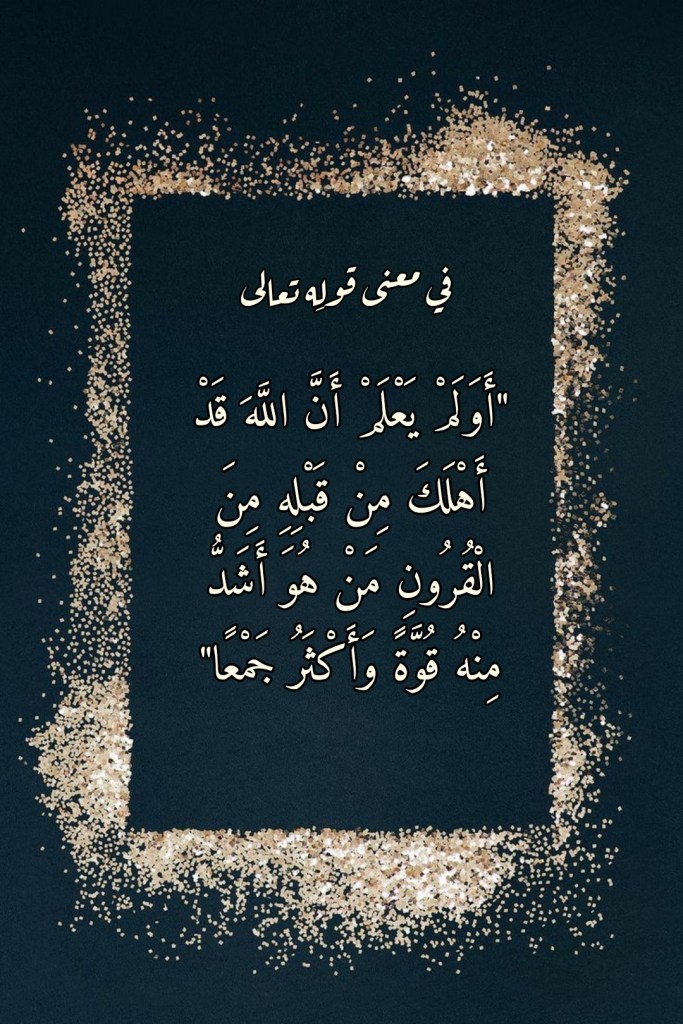 في معنى قولِه تعالى
"أَوَلَمْ يَعْلَمْ أَنَّ اللَّهَ قَدْ
أَهْلَكَ مِنْ قَبْلِهِ مِنَ
الْقُرُونِ مَنْ هُوَ أَشَدُّ
مِنْهُ قُوَّةً وَأَكْثَرُ جَمْعًا"